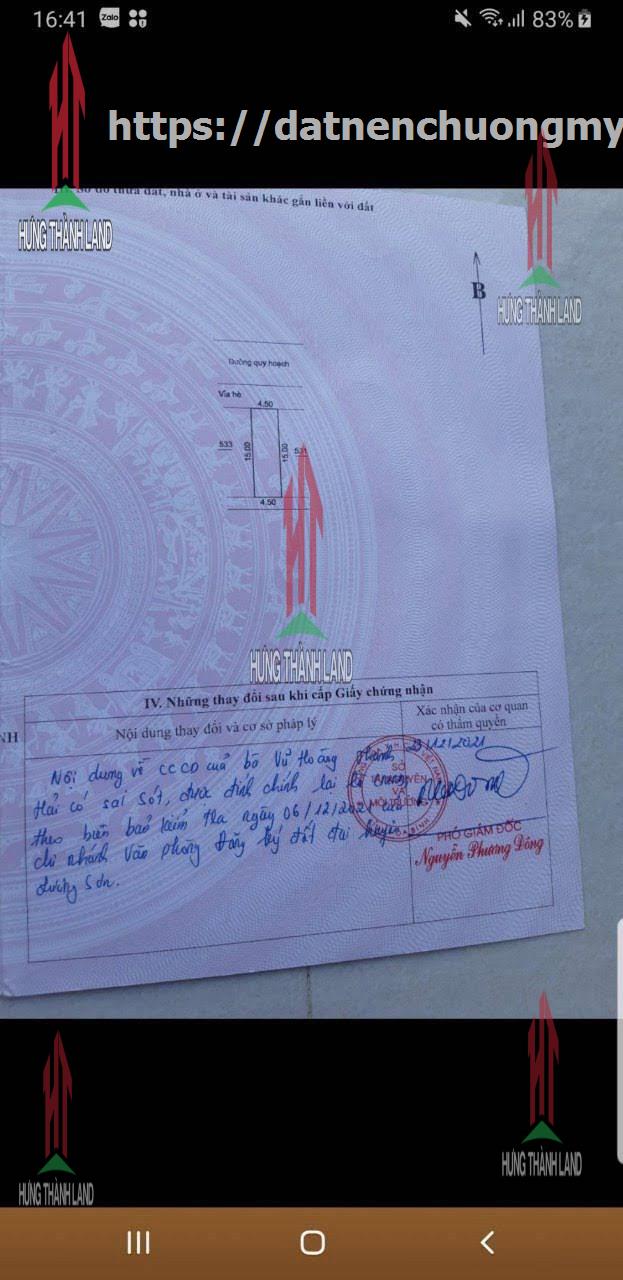 16:41
Zalo
83%
https://datnenchuongmy
III. Sơ đồ thửa đất, nhà ở và tài sản khác gắn liền với đất
HƯNG THÀNH LAND
B
HƯNG THÀNH LAND
Đường quy hoạch
Vỉa hè
4.50
533
15.00
15.00
531
4.50
HƯNG THÀNH LAND
IV. Những thay đổi sau khi cấp Giấy chứng nhận
NH
Nội dung thay đổi và cơ sở pháp lý
Xác nhận của cơ quan
có thẩm quyền
Nội dung về CCCD của bà Vũ Hoàng Thanh
Hải có sai sót, được đính chính lại là
theo biên bản kiểm tra ngày 06/12/2021 của
chi nhánh Văn phòng Đăng ký đất đai huyện
Lương Sơn.
23/12/2021
SỞ
TÀI NGUYÊN
VÀ
MÔI TRƯỜNG
PHÓ GIÁM ĐỐC
Nguyễn Phương Đông
HƯNG THÀNH LAND
HƯNG THÀNH LAND